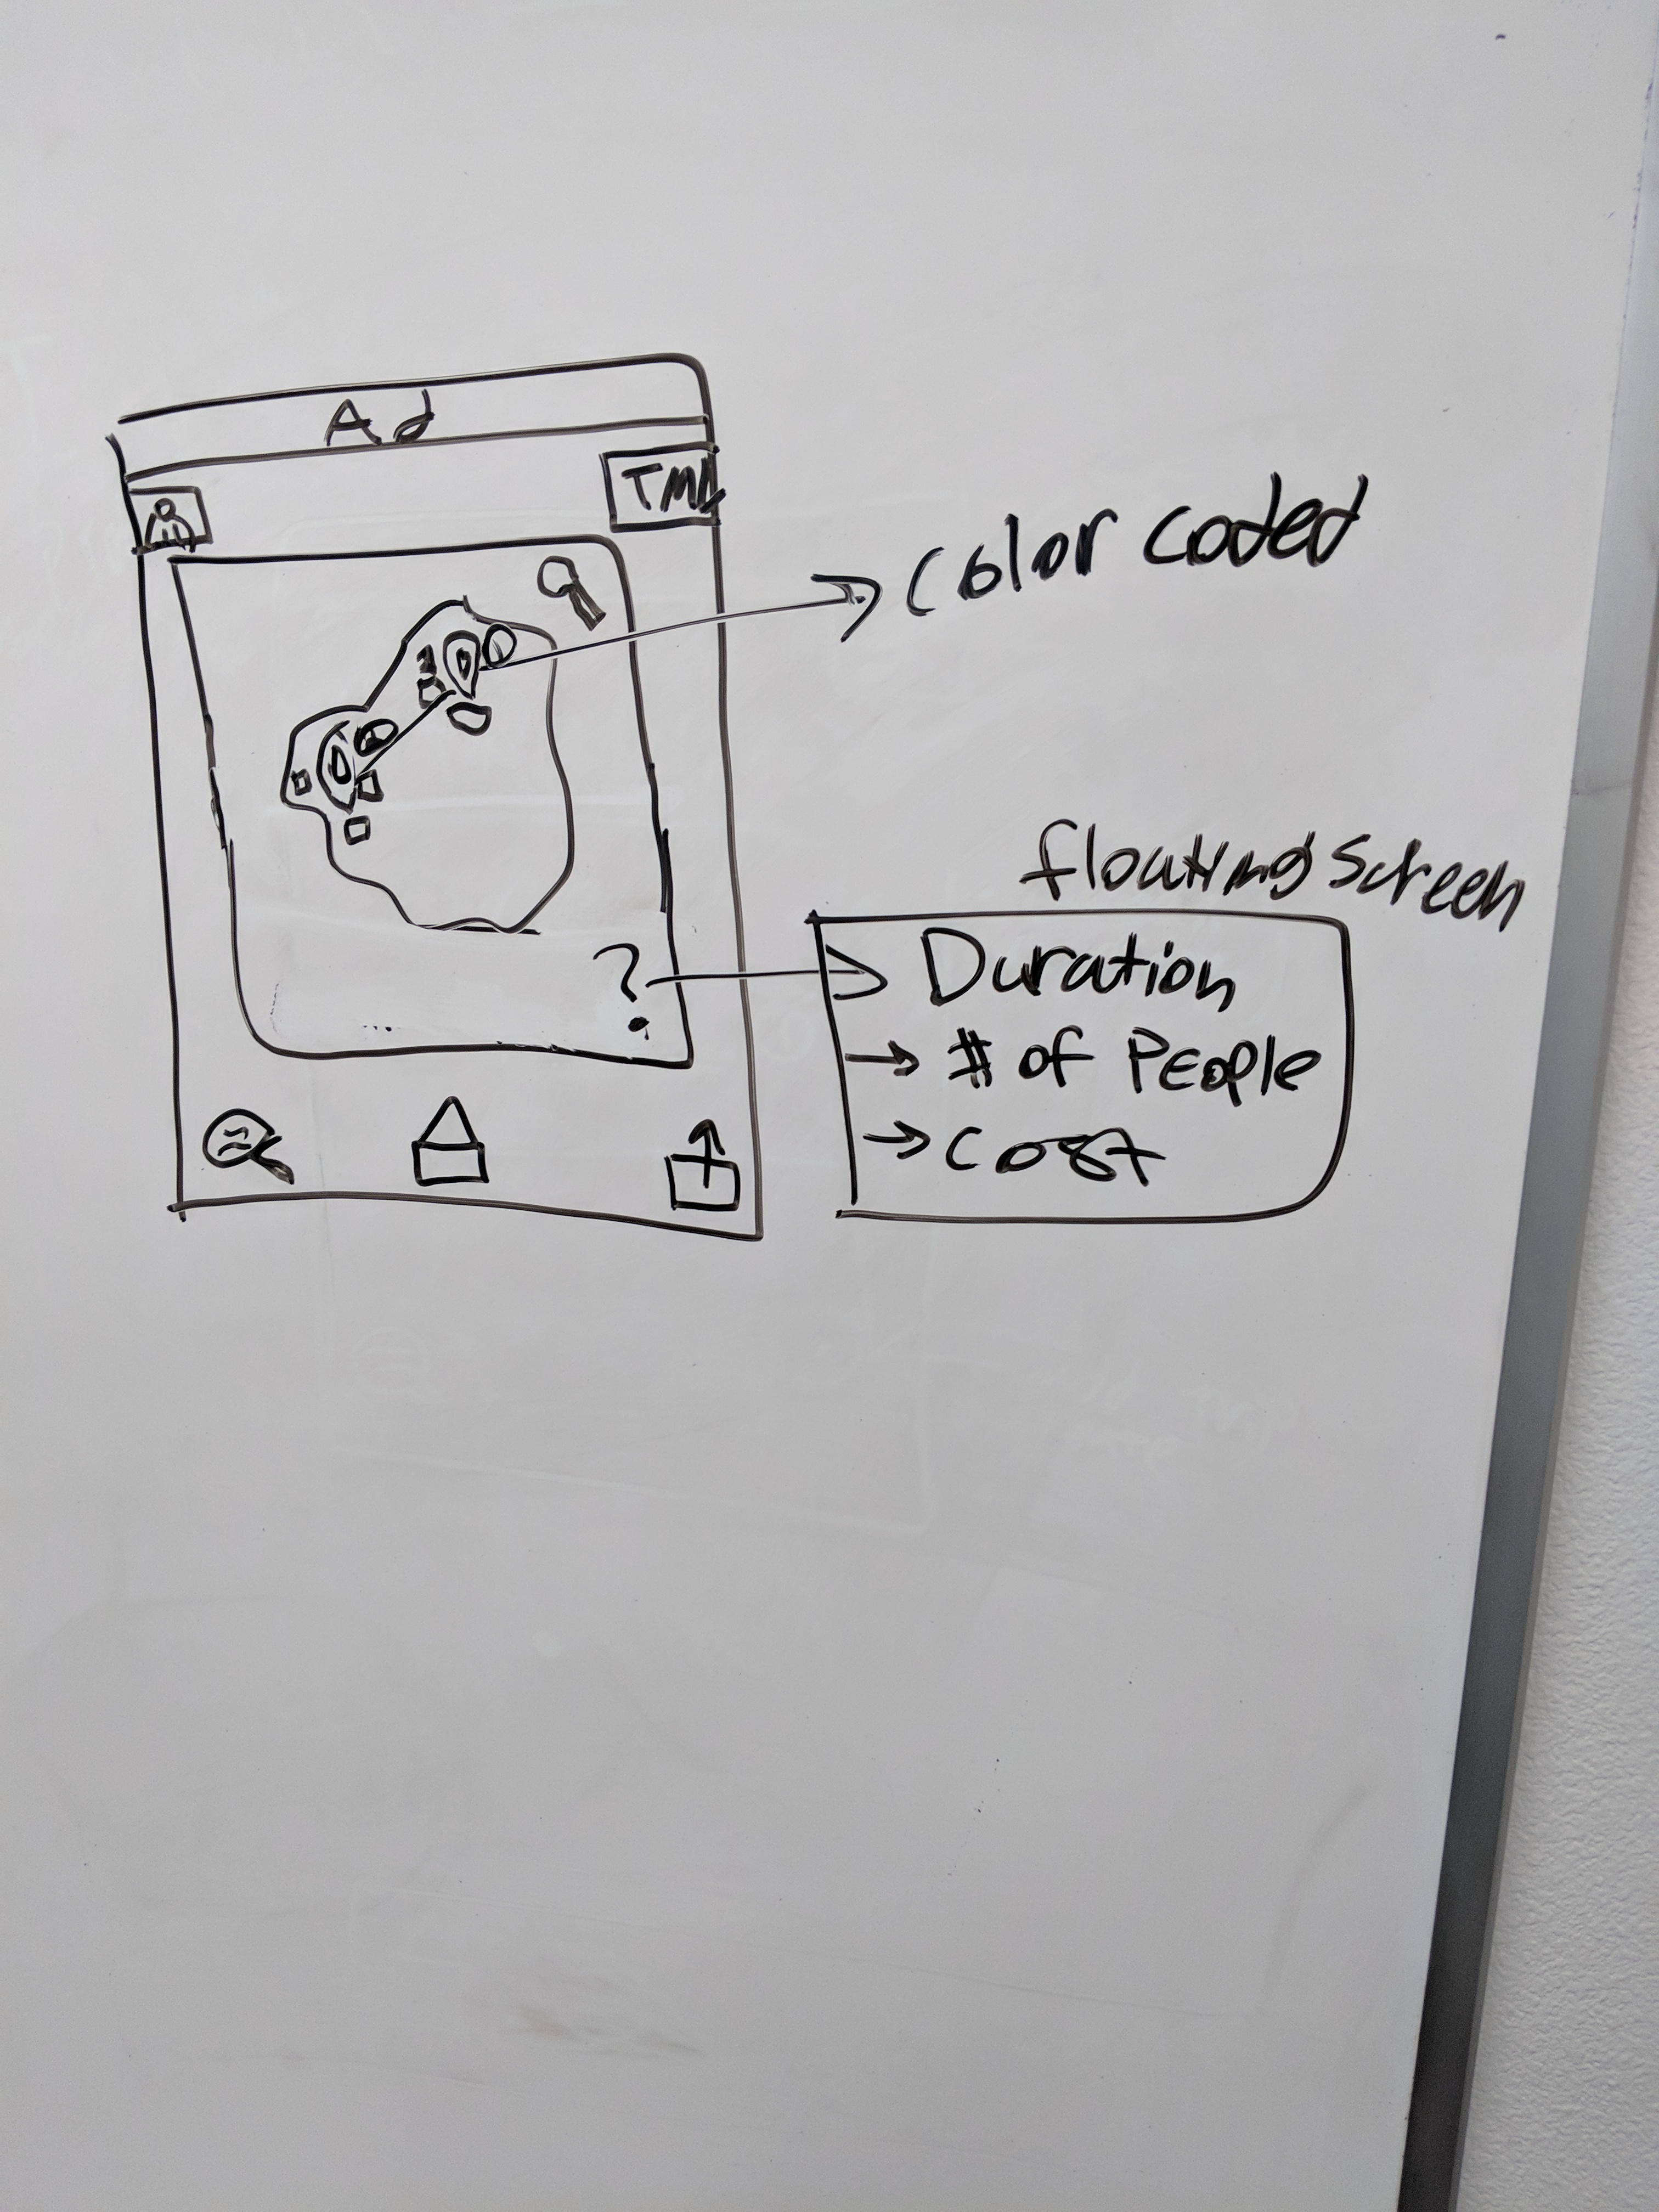 Ad
color coded
floating screen
?
Duration
→ # of People
→ cost